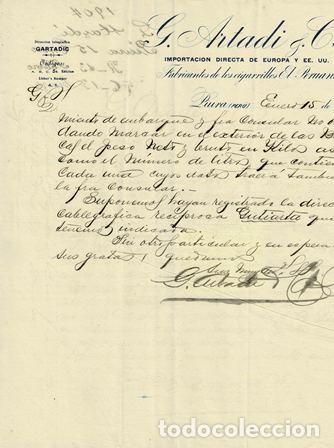 Dirección telegráfica
GARTADIC
Códigos:
A. B. C. 5th. Edition
Lieber's Standard
A. 1.
G. Artadi & C
IMPORTACION DIRECTA DE EUROPA Y EE. UU.
Fabricantes de los cigarrillos El
Piura (PERÚ) Enero 15 de
miento de embarque y fra Consular
dando marcar en el exterior de las
el peso Neto y bruto en Kilos
como el Número de litros que
Cada una cuyos datos
la fra Consular.
Suponemos hayan registrado la
Cablegráfica recíproca que
tenemos indicada.
Sin otro particular y en espera
sus gratas, quedamos
G. Artadi
todocoleccion